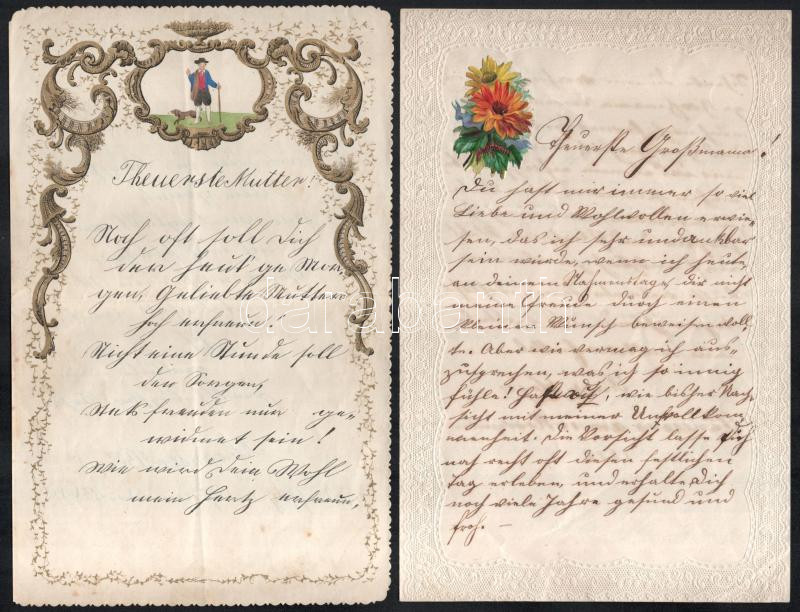 Theuerste Mutter!
Noch oft soll Dich
der heut'ge Mor-
gen, Geliebte Mutter
hoch erfreun!
Nicht eine Stunde soll
den Sorgen,
Stets freuden nur ge-
widmet sein!
Wie wird Dein Wohl
mein Hertz erfreun,
Theuerste Großmama!
Du hast mir immer so viel
Liebe und Wohlwollen erwie-
sen, das ich sehr undankbar
sein würde, wenn ich heute,
an deinem Nahmenstage, dir nicht
meine Freude durch einen
kleinen Wunsch beweisen woll-
te. Aber wie vermag ich aus-
zusprechen, was ich so innig
fühle! Habe, wie bisher Nach-
sicht mit meiner Unvollkom-
menheit. Die Vorsicht lasse Dich
noch recht oft diesen festlichen
Tag erleben, und erhalte Dich
noch viele Jahre gesund und
froh. —
darabanth